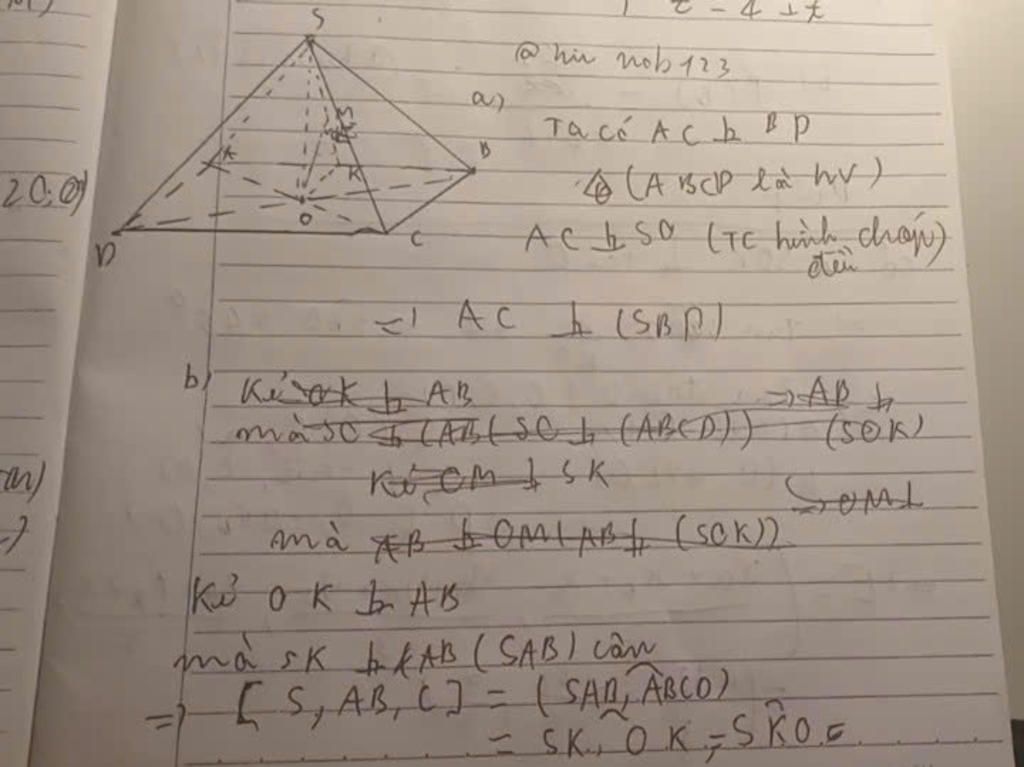 S
M
K
A
B
O
D
C
20:0)
@hiu nob123
a)
Ta có AC ⊥ BD
(ABCD là hv)
AC ⊥ SO (TC hình chóp đều)
=) AC ⊥ (SBD)
b)
Kẻ OK ⊥ AB => AB ⊥
mà SO ⊥ (AB (SO ⊥ (ABCD)) (SOK)
Kẻ OM ⊥ SK
=> OM ⊥
mà AB ⊥ OM (AB ⊥ (SOK))
Kẻ OK ⊥ AB
mà SK ⊥ AB (SAB) cân
=) [S, AB, C] = (SAB, ABCD)
= SK, OK = SKO =